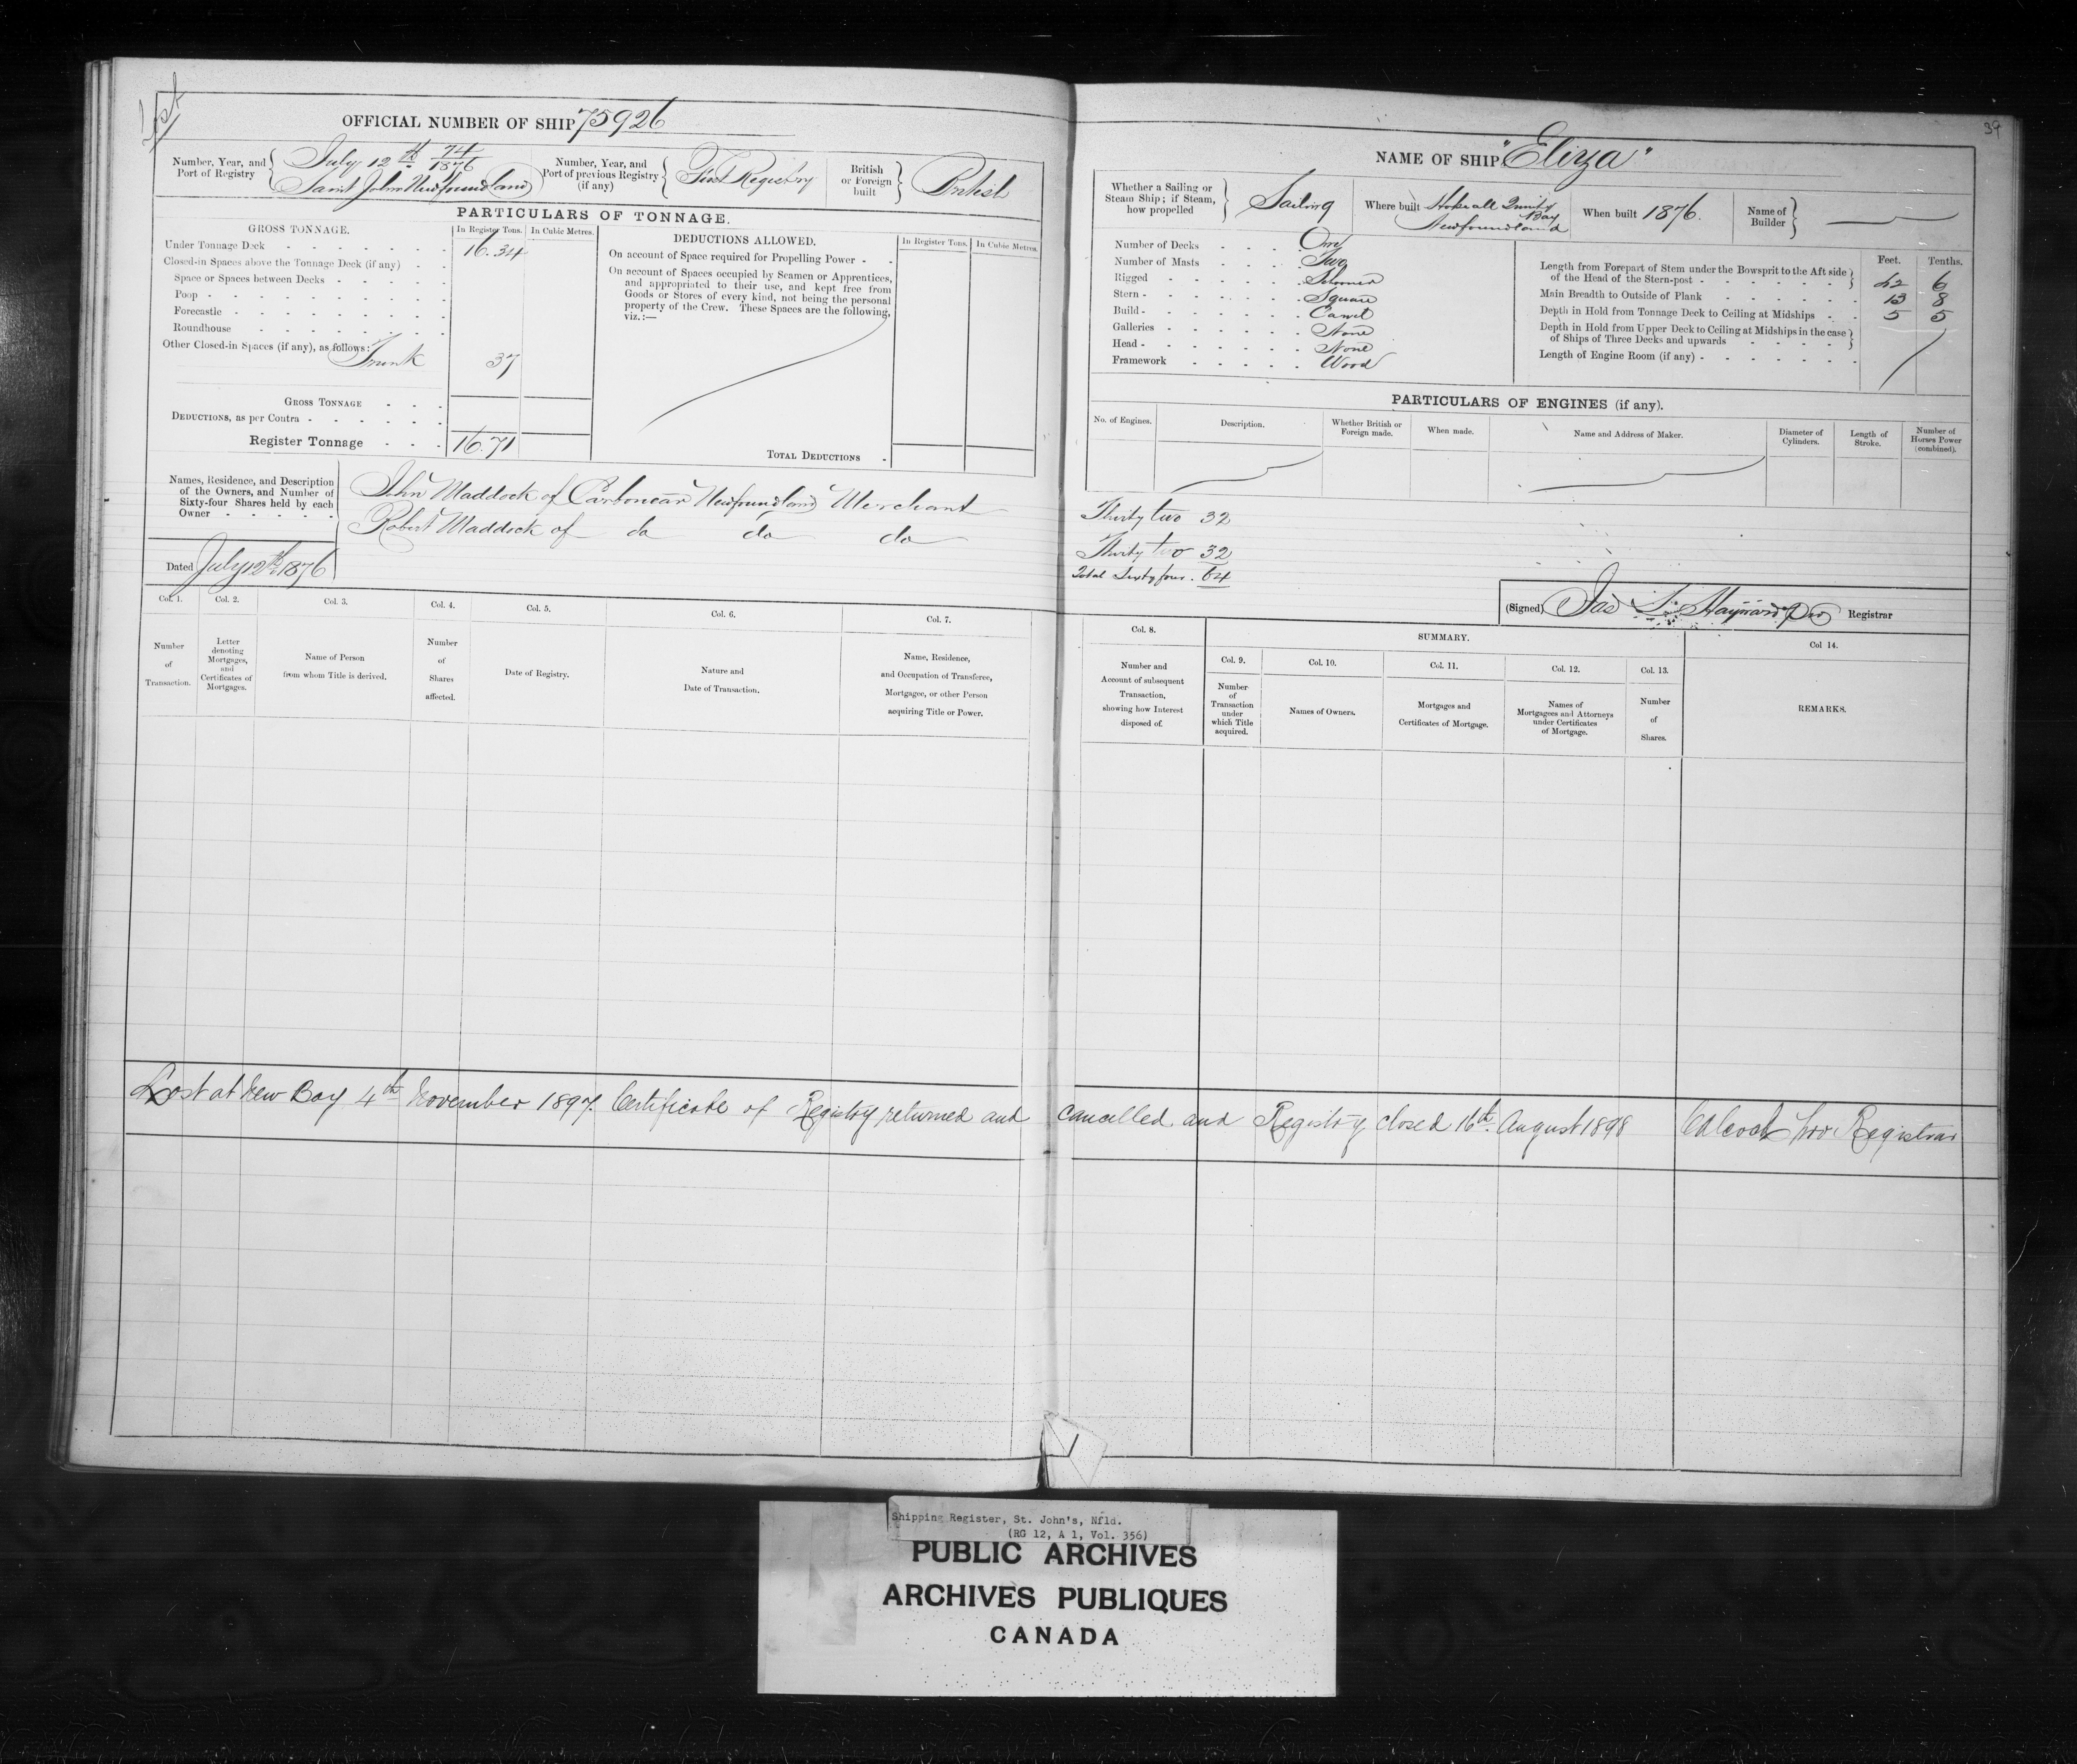 39
Lost
OFFICIAL NUMBER OF SHIP 75926
Number, Year, and Port of Registry
July 12th 74/1876
Saint John Newfoundland
Number, Year, and Port of previous Registry (if any)
First Registry
British or Foreign built
British
PARTICULARS OF TONNAGE.
GROSS TONNAGE.
In Register Tons.
In Cubic Metres.
Under Tonnage Deck 16.34
Closed-in Spaces above the Tonnage Deck (if any)
Space or Spaces between Decks
Poop
Forecastle
Roundhouse
Other Closed-in Spaces (if any), as follows:
Trunk 37
GROSS TONNAGE
DEDUCTIONS, as per Contra
Register Tonnage 16.71
DEDUCTIONS ALLOWED.
In Register Tons.
In Cubic Metres.
On account of Space required for Propelling Power
On account of Spaces occupied by Seamen or Apprentices,
and appropriated to their use, and kept free from
Goods or Stores of every kind, not being the personal
property of the Crew. These Spaces are the following,
viz.:—
TOTAL DEDUCTIONS
Names, Residence, and Description
of the Owners, and Number of
Sixty-four Shares held by each
Owner
John Maddock of Carbonear Newfoundland Merchant
Robert Maddock of do do do
Dated July 12th 1876
NAME OF SHIP "Eliza"
Whether a Sailing or Steam Ship; if Steam, how propelled
Sailing
Where built
Trinity Bay
Newfoundland
When built 1876.
Name of Builder
Number of Decks One
Number of Masts Two
Rigged Schooner
Stern Square
Build Carvel
Galleries None
Head None
Framework Wood
Feet. Tenths.
Length from Forepart of Stem under the Bowsprit to the Aft side
of the Head of the Stern-post 42 6
Main Breadth to Outside of Plank 13 8
Depth in Hold from Tonnage Deck to Ceiling at Midships 5 5
Depth in Hold from Upper Deck to Ceiling at Midships in the case
of Ships of Three Decks and upwards
Length of Engine Room (if any)
PARTICULARS OF ENGINES (if any).
No. of Engines.
Description.
Whether British or Foreign made.
When made.
Name and Address of Maker.
Diameter of Cylinders.
Length of Stroke.
Number of Horses Power (combined).
Thirty two 32
Thirty two 32
Total Sixty four. 64
(Signed) Jas S. Hayward pro Registrar
Col. 1.
Number of Transaction.
Col. 2.
Letter denoting Mortgages, and Certificates of Mortgages.
Col. 3.
Name of Person from whom Title is derived.
Col. 4.
Number of Shares affected.
Col. 5.
Date of Registry.
Col. 6.
Nature and Date of Transaction.
Col. 7.
Name, Residence, and Occupation of Transferee, Mortgagee, or other Person acquiring Title or Power.
Col. 8.
Number and Account of subsequent Transaction, showing how Interest disposed of.
SUMMARY.
Col. 9.
Number of Transaction under which Title acquired.
Col. 10.
Names of Owners.
Col. 11.
Mortgages and Certificates of Mortgage.
Col. 12.
Names of Mortgagees and Attorneys under Certificates of Mortgage.
Col. 13.
Number of Shares.
Col 14.
REMARKS.
Lost at New Bay 4th November 1897. Certificate of Registry returned and cancelled and Registry closed 16th August 1898 pro Registrar
Shipping Register, St. John's, Nfld.
(RG 12, A 1, Vol. 356)
PUBLIC ARCHIVES
ARCHIVES PUBLIQUES
CANADA